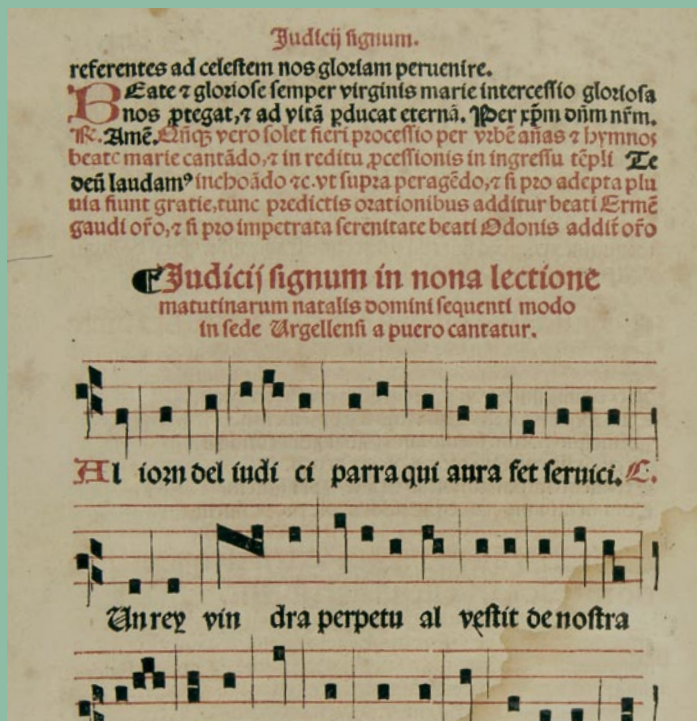 Judicij signum.
referentes ad celestem nos gloriam peruenire.
BEate ⁊ gloriose semper virginis marie intercessio gloriosa
nos ꝓtegat, ⁊ ad vitã ꝑducat eternã. Per xp̄m dñm nr̃m.
℟. Amẽ. Qñqꝫ vero solet fieri processio per vrbẽ añas ⁊ hymnos
beate marie cantãdo, ⁊ in reditu ꝓcessionis in ingressu tẽpli Te
deũ laudamꝰ inchoãdo ⁊c. vt supra peragẽdo, ⁊ si pro adepta plu
uia fiunt gratie, tunc predictis orationibus additur beati Ermẽ
gaudi oro̅, ⁊ si pro impetrata serenitate beati Odonis addit̃ oro̅
¶Judicij signum in nona lectione
matutinarum natalis domini sequenti modo
in sede Urgellensi a puero cantatur.
Al iorn del iudi ci parra qui aura fet seruici. C.
Un rey vin dra perpetu al vestit de nostra